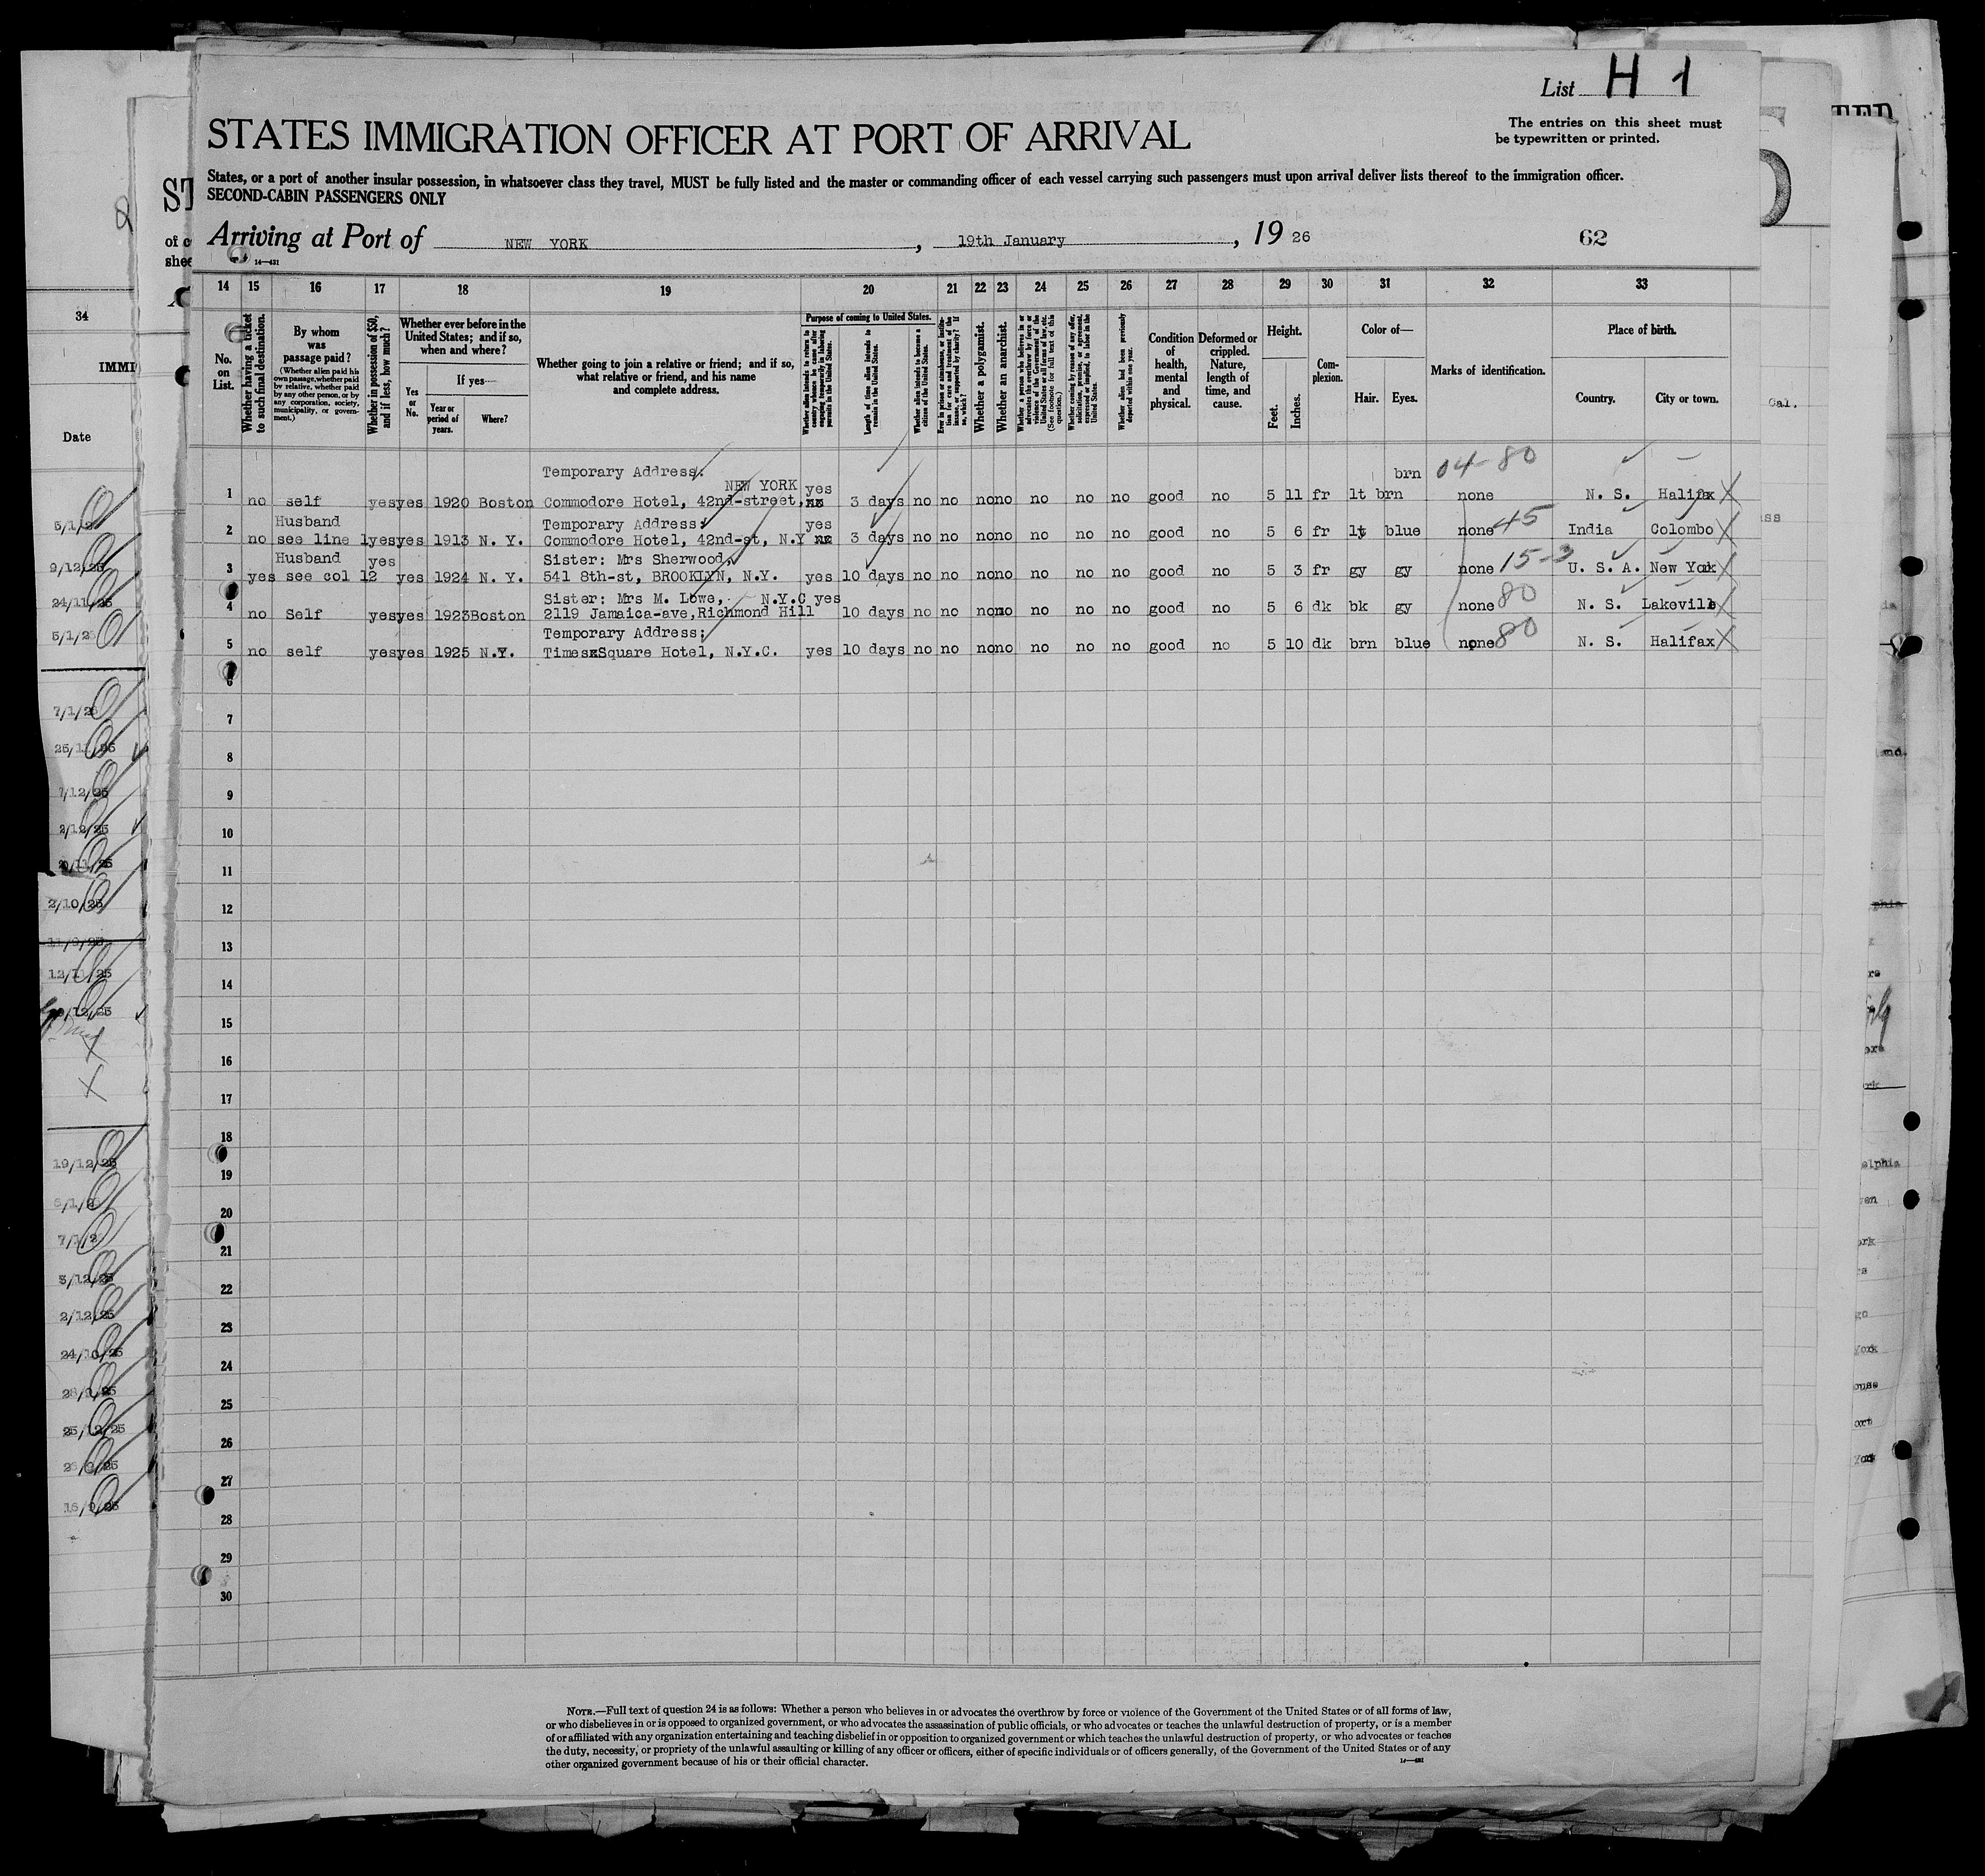 List H 1
The entries on this sheet must
be typewritten or printed.
STATES IMMIGRATION OFFICER AT PORT OF ARRIVAL
States, or a port of another insular possession, in whatsoever class they travel, MUST be fully listed and the master or commanding officer of each vessel carrying such passengers must upon arrival deliver lists thereof to the immigration officer.
SECOND-CABIN PASSENGERS ONLY
Arriving at Port of NEW YORK, 19th January, 19 26
62
14—431
14 15 16 17 18 19 20 21 22 23 24 25 26 27 28 29 30 31 32 33
No. on List.
Whether having a ticket to such final destination.
By whom was passage paid?
(Whether alien paid his own passage, whether paid by relative, whether paid by any other person, or by any corporation, society, municipality, or government.)
Whether in possession of $50, and if less, how much?
Whether ever before in the United States; and if so, when and where?
Yes or No.
If yes—
Year or period of years.
Where?
Whether going to join a relative or friend; and if so, what relative or friend, and his name and complete address.
Purpose of coming to United States.
Whether alien intends to return to country whence he came after engaging temporarily in laboring pursuits in the United States.
Length of time alien intends to remain in the United States.
Whether alien intends to become a citizen of the United States.
Ever in prison or almshouse, or institution for care and treatment of the insane, or supported by charity? If so, which?
Whether a polygamist.
Whether an anarchist.
Whether a person who believes in or advocates the overthrow by force or violence of the Government of the United States or all forms of law, etc. (See footnote for full text of this question.)
Whether coming by reason of any offer, solicitation, promise, or agreement, expressed or implied, to labor in the United States.
Whether alien had been previously deported within one year.
Condition of health, mental and physical.
Deformed or crippled. Nature, length of time, and cause.
Height.
Feet.
Inches.
Complexion.
Color of—
Hair.
Eyes.
Marks of identification.
Place of birth.
Country.
City or town.
Temporary Address: brn 04-80
NEW YORK yes
1 no self yes yes 1920 Boston Commodore Hotel, 42nd-street, no 3 days no no no no no no no good no 5 11 fr lt brn none N. S. Halifax
Husband Temporary Address: yes
2 no see line 1 yes yes 1913 N. Y. Commodore Hotel, 42nd-st, N.Y no 3 days no no no no no no no good no 5 6 fr lt blue none 45 India Colombo
Husband yes Sister: Mrs Sherwood,
3 yes see col 12 yes 1924 N. Y. 541 8th-st, BROOKLYN, N.Y. yes 10 days no no no no no no no good no 5 3 fr gy gy none 15-3 U. S. A. New York
Sister: Mrs M. Lowe, N.Y.C yes
4 no Self yes yes 1923 Boston 2119 Jamaica-ave, Richmond Hill 10 days no no no no no no no good no 5 6 dk bk gy none 80 N. S. Lakeville
Temporary Address:
5 no self yes yes 1925 N.Y. Times Square Hotel, N.Y.C. yes 10 days no no no no no no no good no 5 10 dk brn blue none 80 N. S. Halifax
6
7
8
9
10
11
12
13
14
15
16
17
18
19
20
21
22
23
24
25
26
27
28
29
30
NOTE.—Full text of question 24 is as follows: Whether a person who believes in or advocates the overthrow by force or violence of the Government of the United States or of all forms of law,
or who disbelieves in or is opposed to organized government, or who advocates the assassination of public officials, or who advocates or teaches the unlawful destruction of property, or is a member
of or affiliated with any organization entertaining and teaching disbelief in or opposition to organized government or which teaches the unlawful destruction of property, or who advocates or teaches
the duty, necessity, or propriety of the unlawful assaulting or killing of any officer or officers, either of specific individuals or of officers generally, of the Government of the United States or of any
other organized government because of his or their official character.
34
IMMI
Date
7/12/25
2/12/25
2/10/25
11/9/25
12/11/25
19/12/25
3/12/25
2/12/25
24/10/25
25/12/25
16/9/25
Cal.